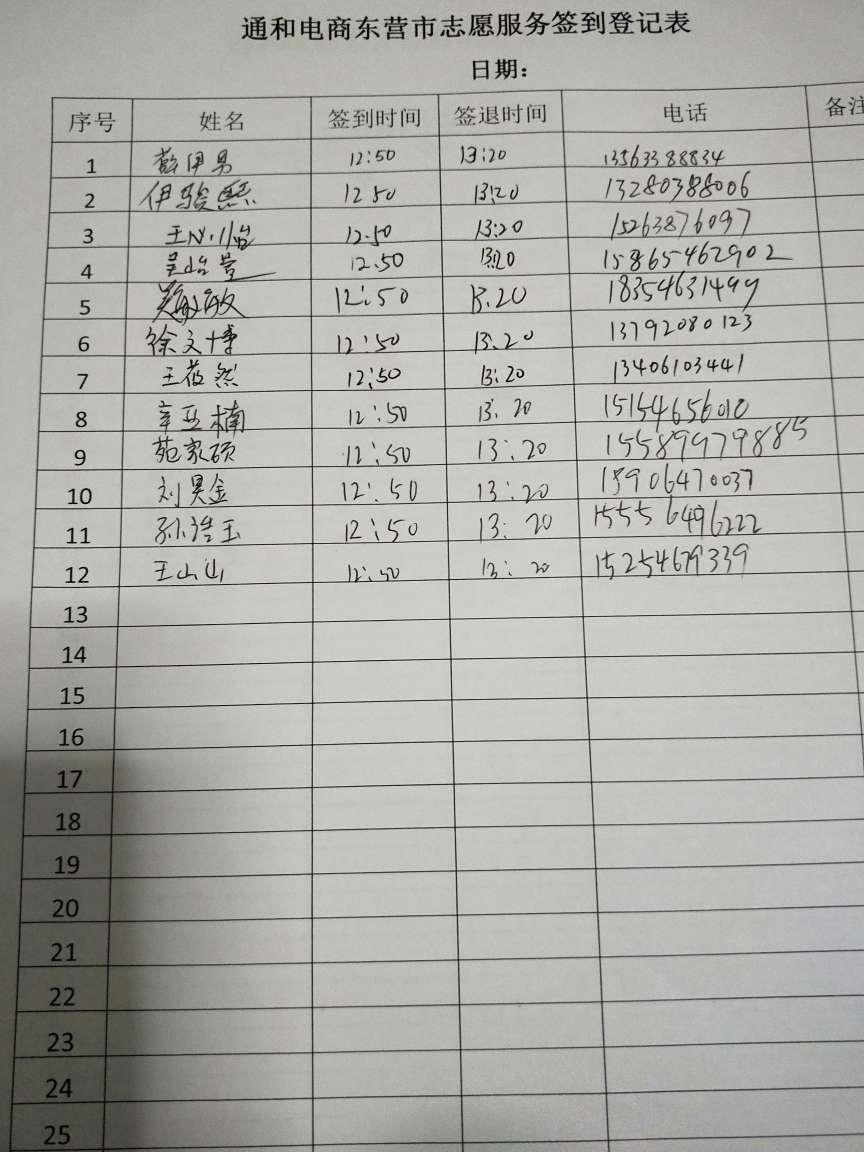 通和电商东营市志愿服务签到登记表
日期：
序号 姓名 签到时间 签退时间 电话 备注
1 伊男 12:50 13:20 13563388834
2 伊骏熙 12 50 13:20 13280388006
3 王 12.50 13:20 15263876097
4 12.50 13:20 15865462902
5 敏 12:50 13.20 18354631499
6 徐文博 12:50 13.20 13792080123
7 王蓓然 12:50 13:20 13406103441
8 辛亚楠 12:50 13:20 15154656010
9 苑家硕 12:50 13:20 15589979885
10 刘昊金 12:50 13:20 15906470037
11 孙浩玉 12:50 13:20 15556496222
12 王山山 12:50 13:20 15254679339
13
14
15
16
17
18
19
20
21
22
23
24
25